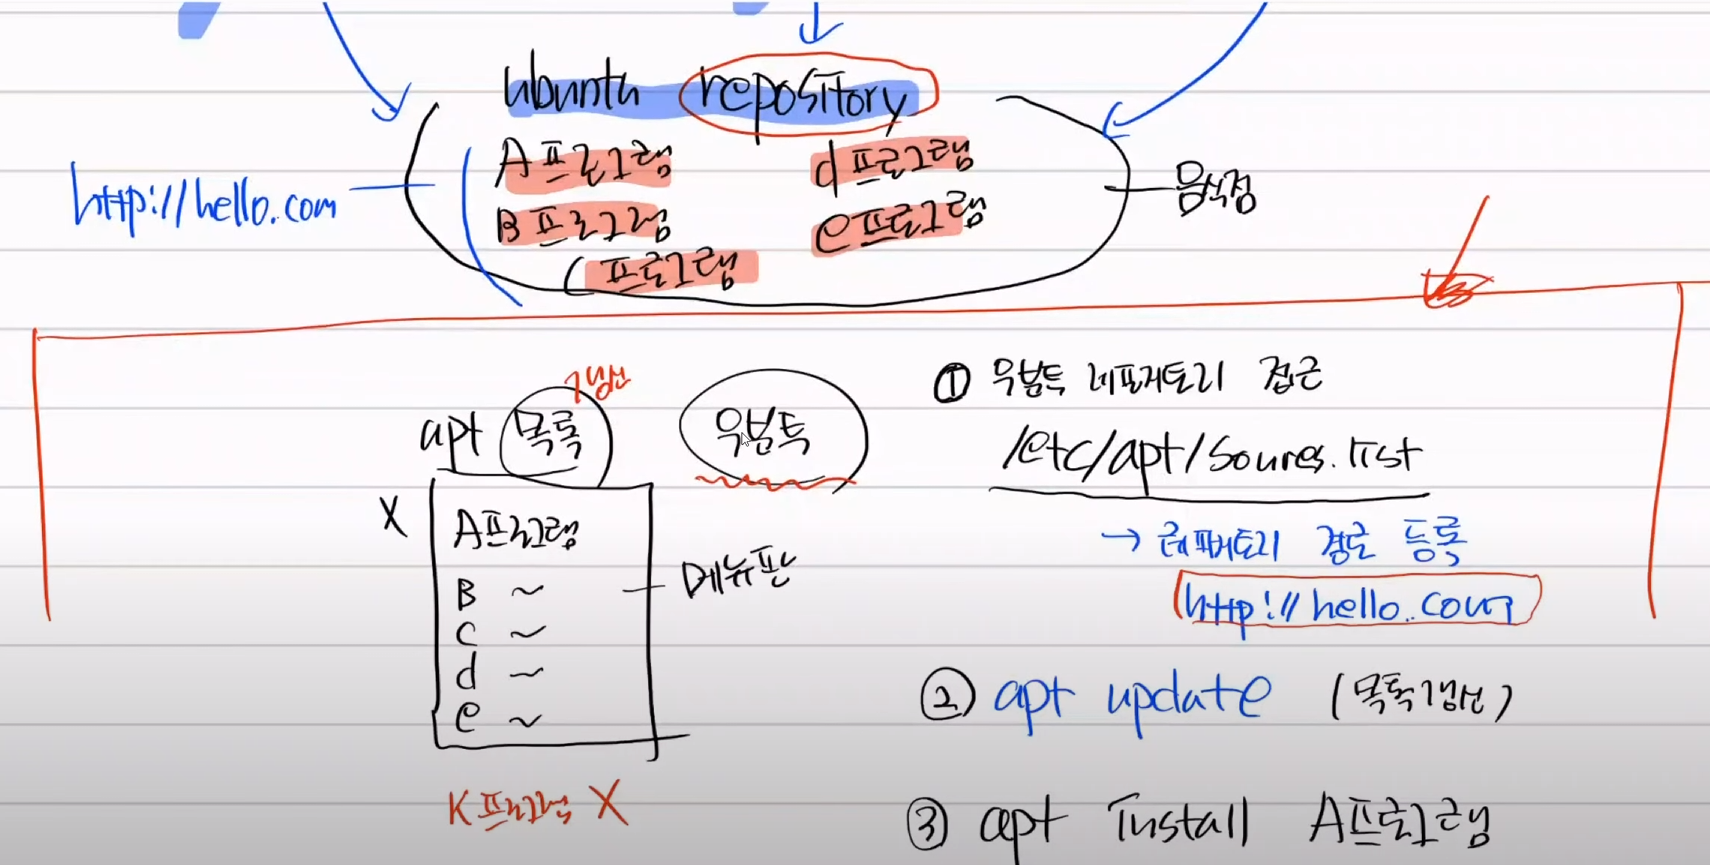 ubuntu repository
A프로그램
d프로그램
http://hello.com
음식점
B프로그램
e프로그램
C프로그램
갱신
apt 목록
우분투
① 우분투 레파지토리 접근
/etc/apt/soures.list
X
A프로그램
→ 레파지토리 경로 등록
메뉴판
B ~
http://hello.com
C ~
d ~
② apt update (목록갱신)
e ~
K프로그램 X
③ apt install A프로그램